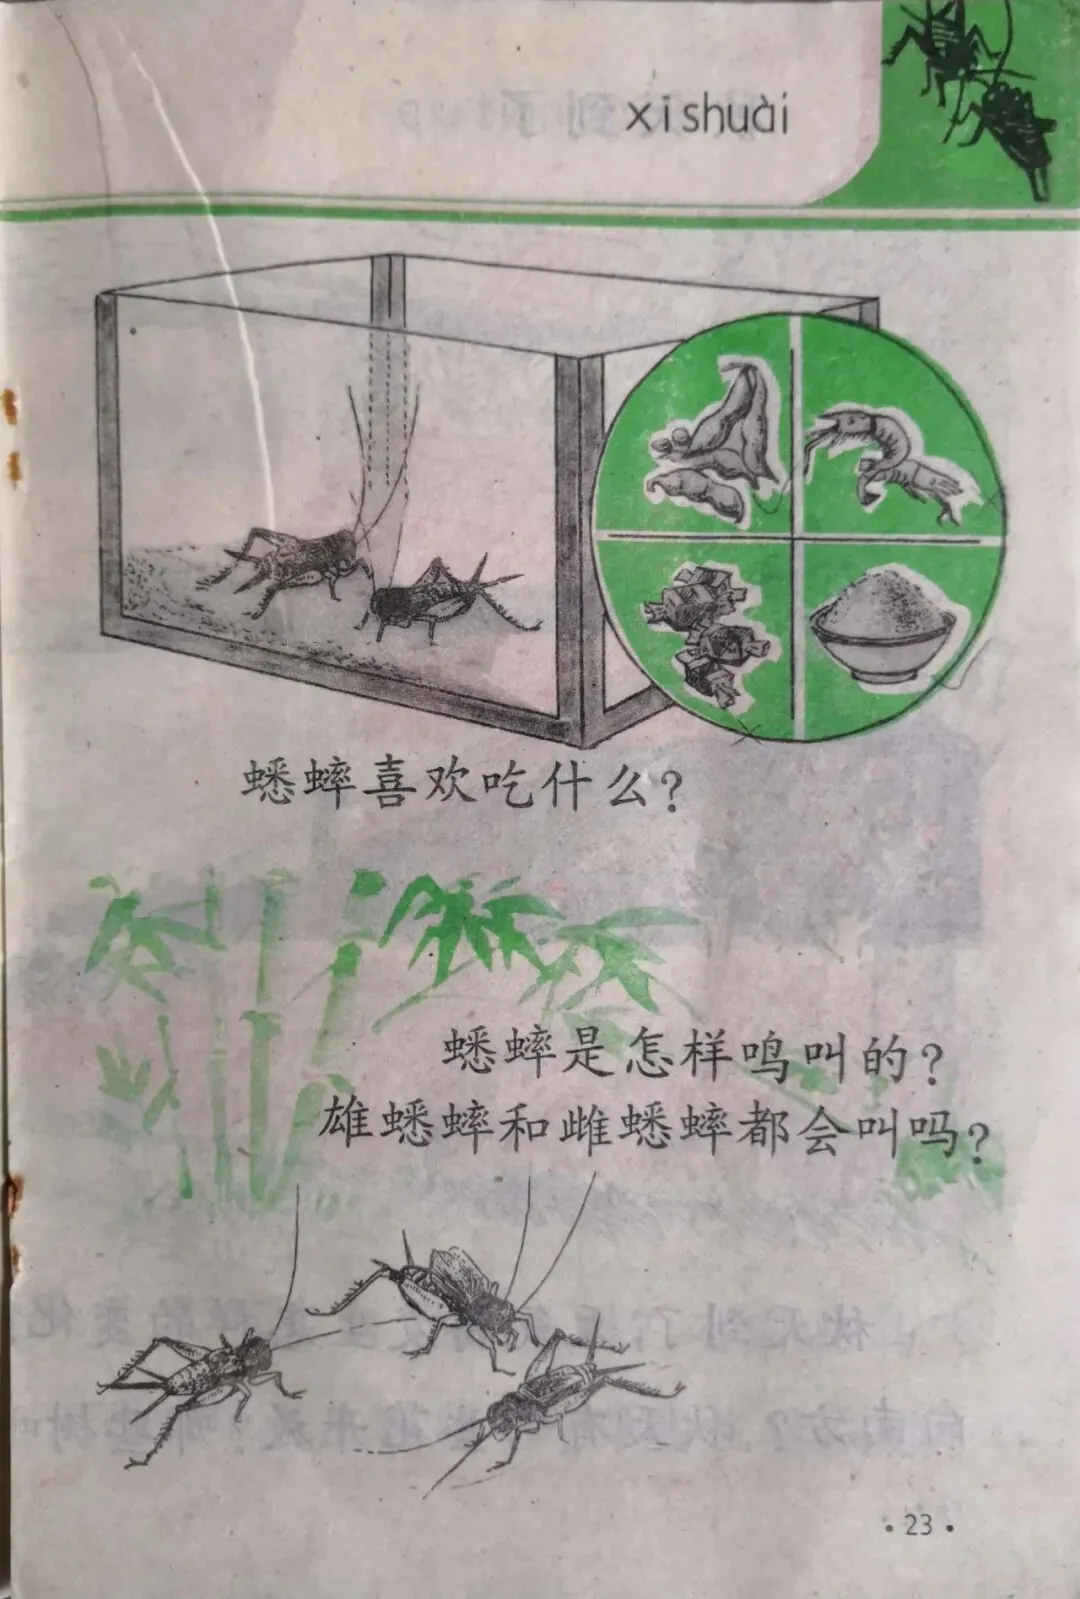 xīshuài
蟋蟀喜欢吃什么?
蟋蟀是怎样鸣叫的?
雄蟋蟀和雌蟋蟀都会叫吗?
·23·